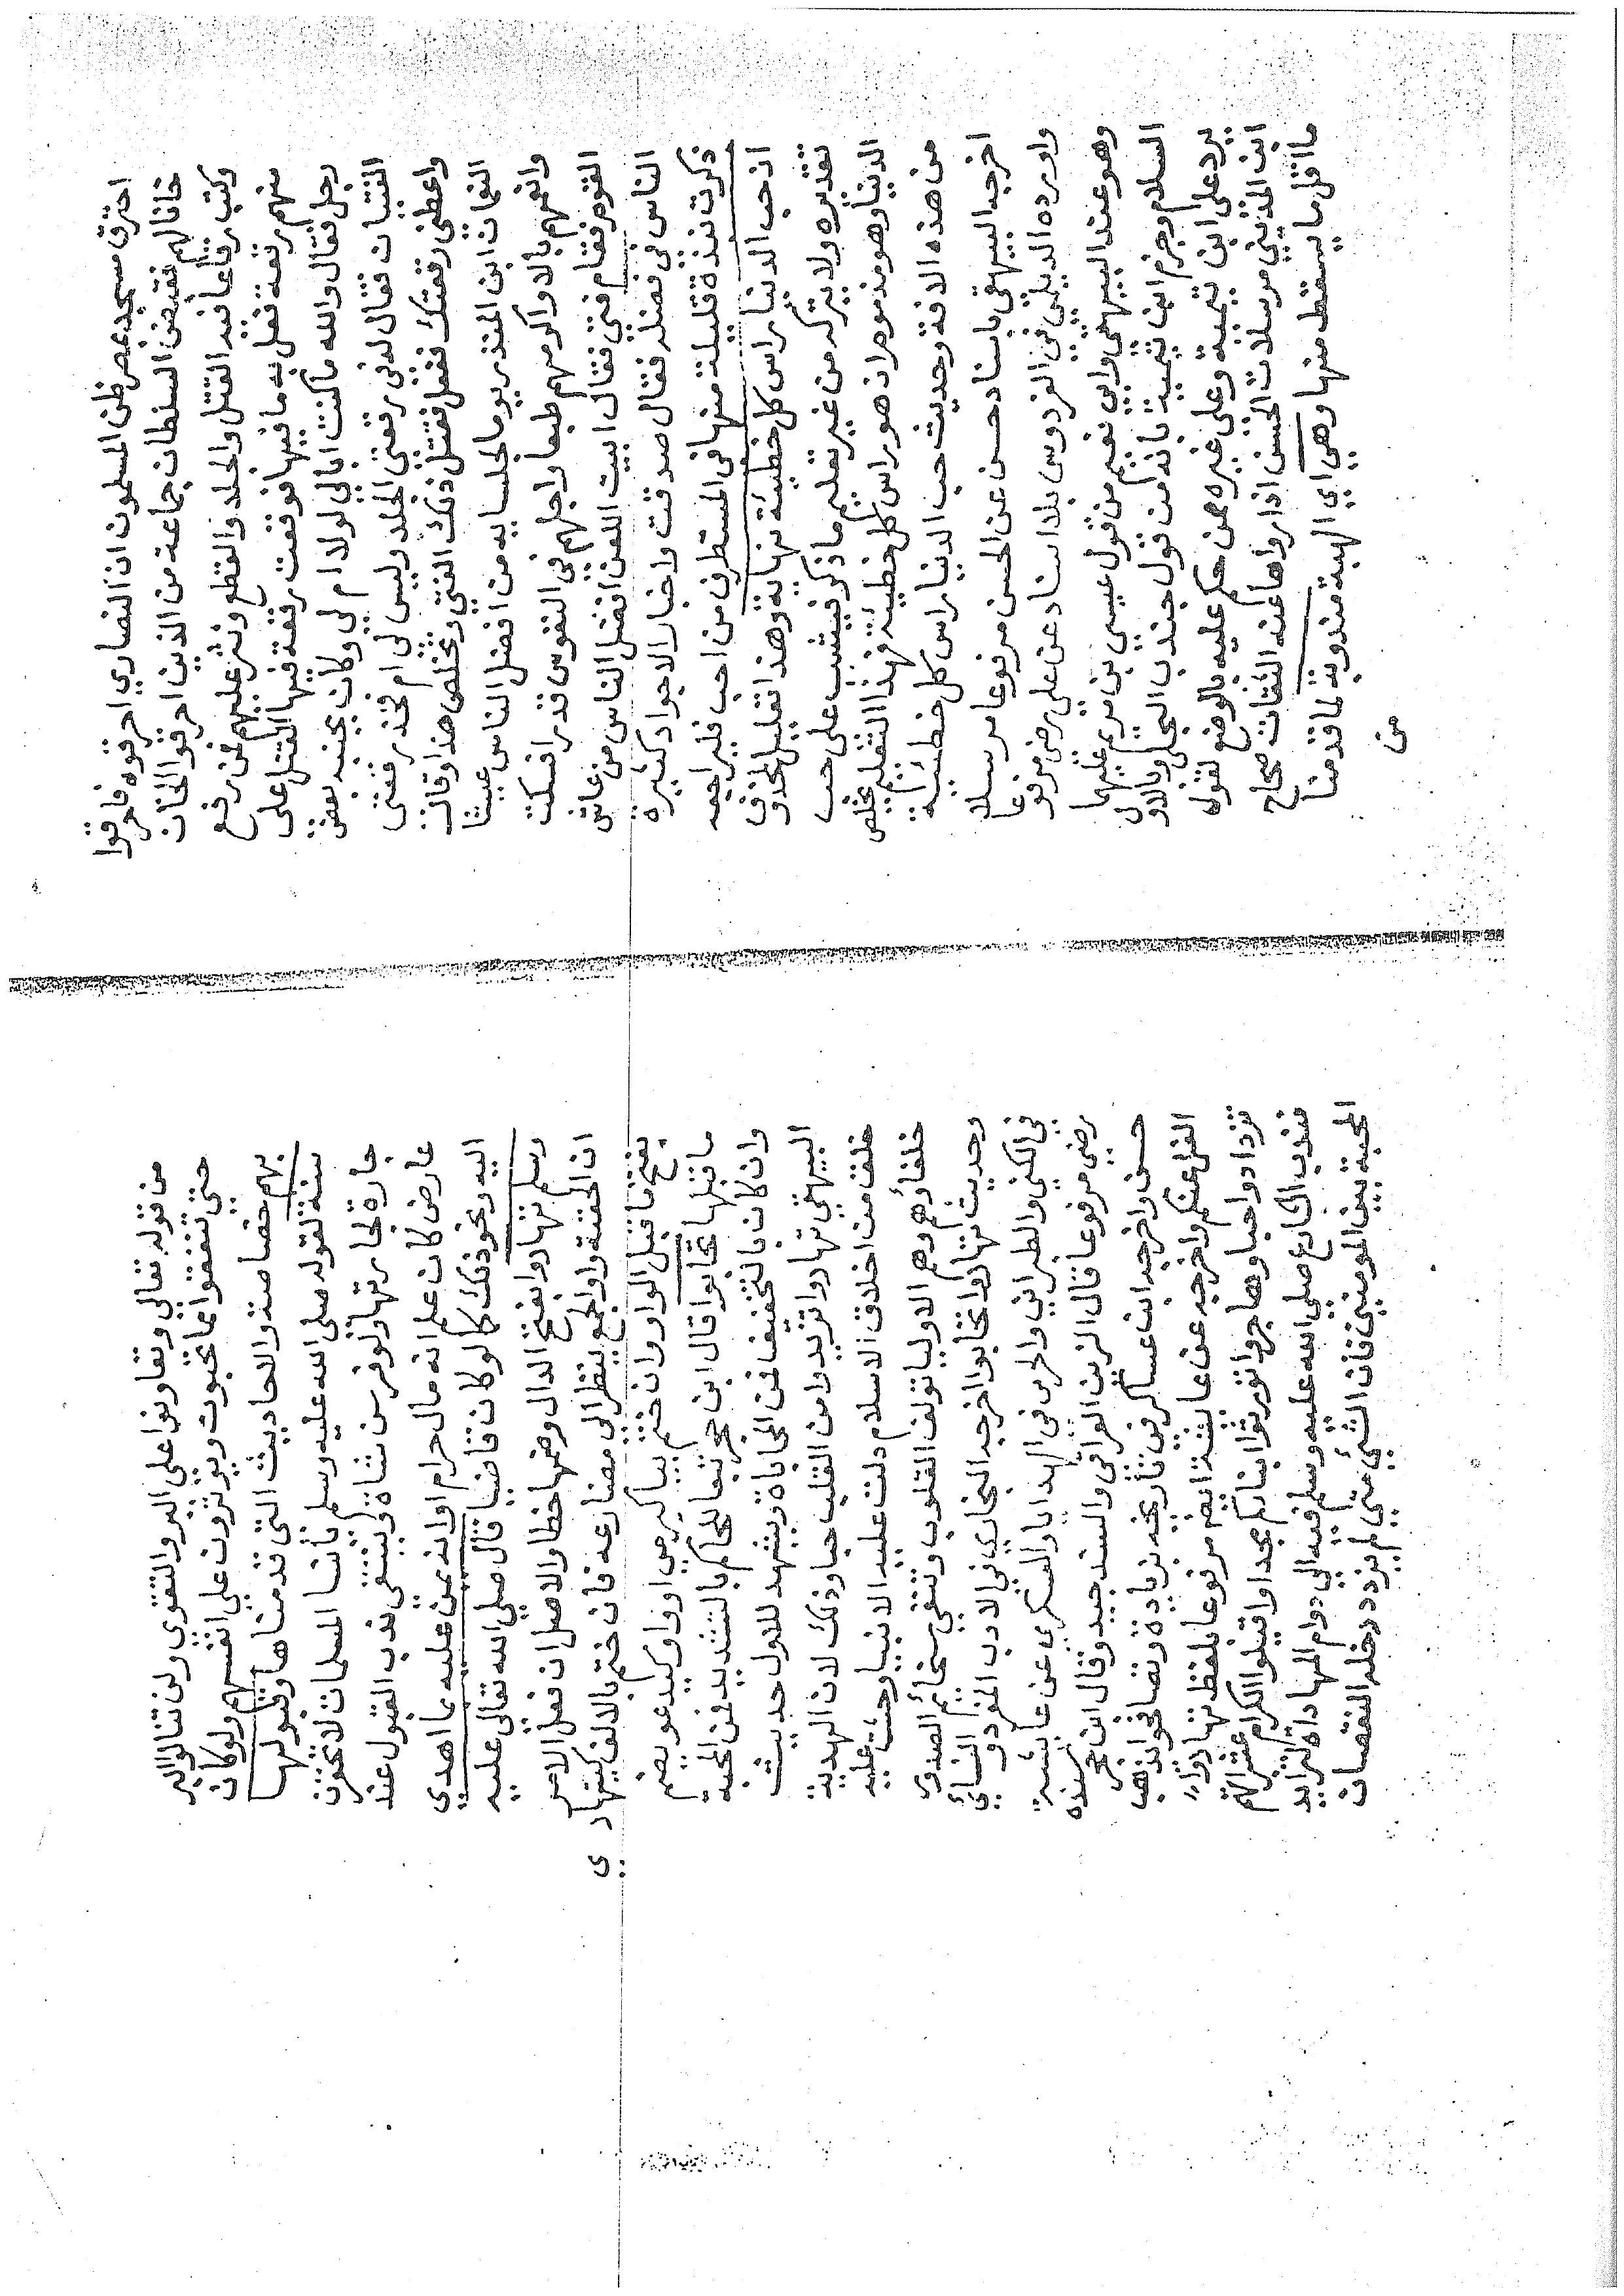 احترق مسجد بمصر فظن المسلمون ان النصاري احرقوه فاحرقوا
خانا لهم فقبض السلطان جماعة من الذين احرقوا الخان
وكتب رقاعا فيه القتل والجلد والقطع ونثر عليهم فمن رفع
منهم رقعة فعل به ما فيها فوقعت رقعة فيها القتل على
رجل فقال والله ما كنت ابالي لولا ام لي وكان بجنبه بعض
الفتيان فقال له في رقعتي الجلد وليس لي ام فخذ رقعتي
واعطني رقعتك ففعل فقتل ذلك الفتي وتخلص هذا وقال
النعمان ابن المنذر يوما لجلسايه من افضل الناس عيشا
وانعمهم بالا واكرمهم طبعا واجلهم في النفوس قدرا فسكت
القوم فقام فتي فقال ابيت اللعن افضل الناس من عاش
الناس في فضله فقال صدقت واخبار الاجواد كثيرة
ذكرت نبذة قليلة منها في المستطرف من احب فليراجعه
اذ حب الدنيا راس كل خطيئة نهاية وهذا تعليل لمحذوف
تقديره ولا يترك من غير تعليم ما ذكر فيشب على حب
الدنيا وهو مذموم اذ هو راس كل خطيئة فهذا التعليم يخلص
من هذه الافة وحديث حب الدنيا راس كل خطيئة
اخرجه البيهقي باسناد حسن عن الحسن مرفوعا مرسلا
واورده الديلمي في الفردوس بلا اسناد عن علي رضي مرفوعا
وهو عند البيهقي وابي نعيم من قول عيسي بن مريم عليهما
السلام وجزم ابن تيمية بانه من قول جندب البجلي وبالاول
يرد على ابن تيمية وعلى غيره ممن حكم عليه بالوضع لقوله
ابن المديني مرسلات الحسن اذا رواها عنه الثقات صحاح
ما اقل ما يسقط منها وهي اي الهبة مندوبة لما قدمنا
من
من قوله تعالي وتعاونوا على البر والتقوي ولن تنالوا البر
حتي تنفقوا مما تحبون ويوثرون علي انفسهم ولو كان
بهم خصاصة والاحاديث التي قدمناها وقبولها
سنة لقوله صلى الله عليه وسلم يا نسا المسلمات لا تحقرن
جارة لجارتها ولو فرسن شاة وينتفي ندب القبول عند
عارض كان علم انه مال حرام او انه يمن عليه بما اهدي
اليه ونحو ذلك كما لو كان قاضيا قال صلي الله تعالى عليه
وسلم تهادوا بفتح الدال وضمها خطا والاصل ان فعل الامر
ان الحقته واو الجمع ينظر الي مضارعه فان ختم بالالف كيتهادي
يفتح ما قبل الواو وان ختم بيا كيرمي او واو كيدعو يضم
ما قبلها تحابوا قال ابن حجر تبعا للحاكم بالتشديد فمن المحبة
وان كان بالتخفيف فمن المحاباة ويشهد للاول حديث
البيهقي تهادوا تزيدوا من القلب حبا وذلك لان الهدية
خلق من اخلاق الاسلام دلت عليه الانبيا وحث عليه
خلفاؤهم وهم الاوليا تولف القلوب وتنفي سخائم الصدور
وحديث تهادوا تحابوا اخرجه البخاري في الادب المفرد والنسائي
في الكني والطبراني والحربي في الهدايا والعسكري عن عايشة
رضي مرفوعا قال الزين العراقي والسند جيد وقال ابن حجر سنده
حسن واخرجه ابن عساكر في تأريخه بزيادة وتصافحوا يذهب
الغل عنكم واخرجه عن عايشة ايضا مرفوعا بلفظ تهادوا
تزدادوا حبا وهاجروا تورثوا ابناءكم مجدا واقيلوا الكرام عثراتهم
فندب الشارع صلي الله عليه وسلم فيه الي دوام المهاداة لتزايد
المحبة بين المومنين فان الشئ متي لم يزدد دخله النقصان